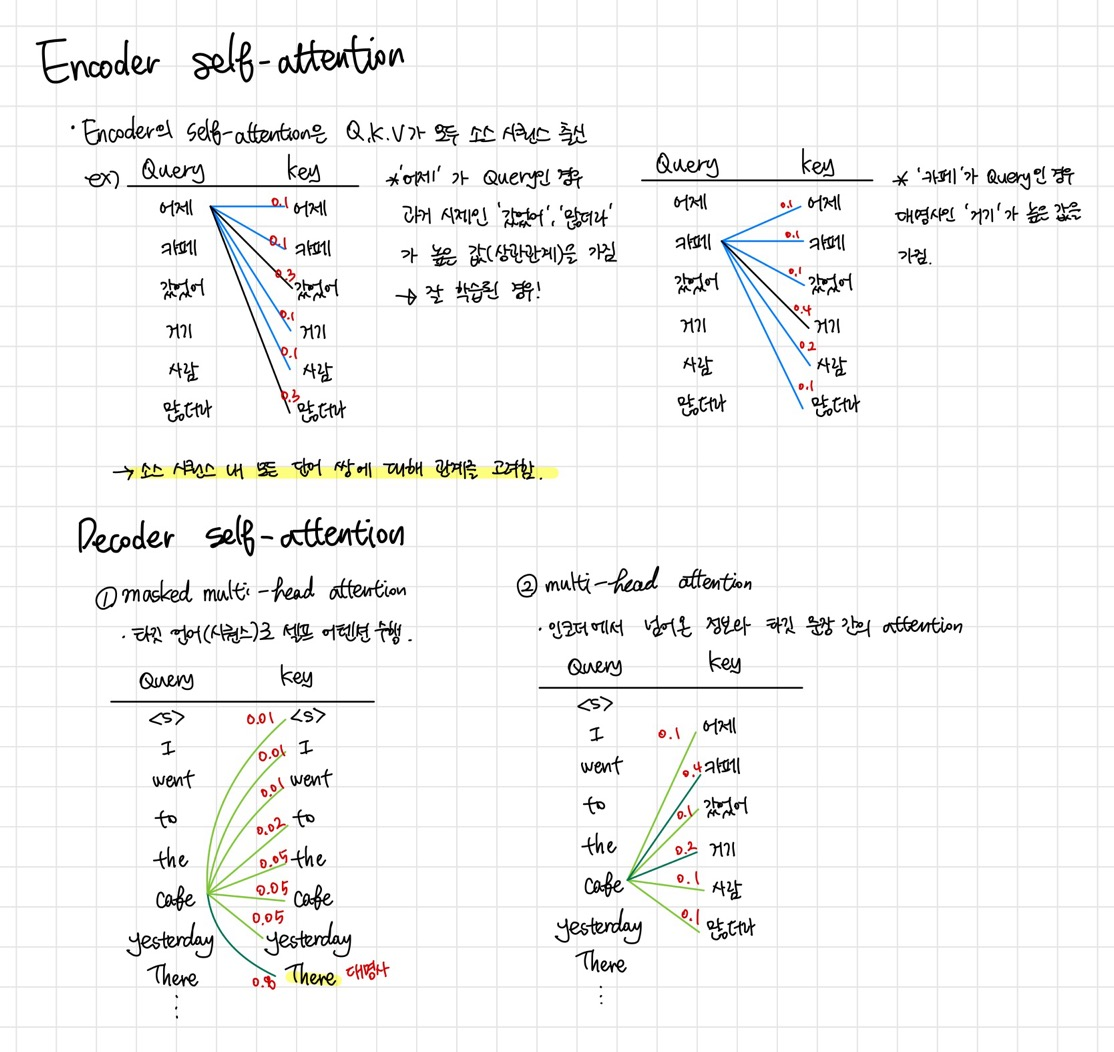 Encoder self-attention
· Encoder의 self-attention은 Q.K.V가 모두 소스 시퀀스 출신
ex) Query key
어제 0.1 어제
카페 0.1 카페
갔었어 0.3 갔었어
거기 0.1 거기
사람 0.1 사람
많더라 0.3 많더라
* '어제'가 Query인 경우
과거 시제인 '갔었어', '많더라'
가 높은 값(상관관계)을 가짐
→ 잘 학습된 경우!
Query key
어제 0.1 어제
카페 0.1 카페
갔었어 0.1 갔었어
거기 0.4 거기
사람 0.2 사람
많더라 0.1 많더라
* '카페'가 Query인 경우
대명사인 '거기'가 높은 값을
가짐.
→ 소스 시퀀스 내 모든 단어 쌍에 대해 관계를 고려함.
Decoder self-attention
① masked multi-head attention
· 타깃 언어(시퀀스)로 셀프 어텐션 수행.
Query key
<s> 0.01 <s>
I 0.01 I
went 0.01 went
to 0.02 to
the 0.05 the
cafe 0.05 cafe
yesterday 0.05 yesterday
There 0.8 There 대명사
⋮
② multi-head attention
· 인코더에서 넘어온 정보와 타깃 문장 간의 attention
Query key
<s>
I 0.1 어제
went 0.4 카페
to 0.1 갔었어
the 0.2 거기
cafe 0.1 사람
yesterday 0.1 많더라
There
⋮